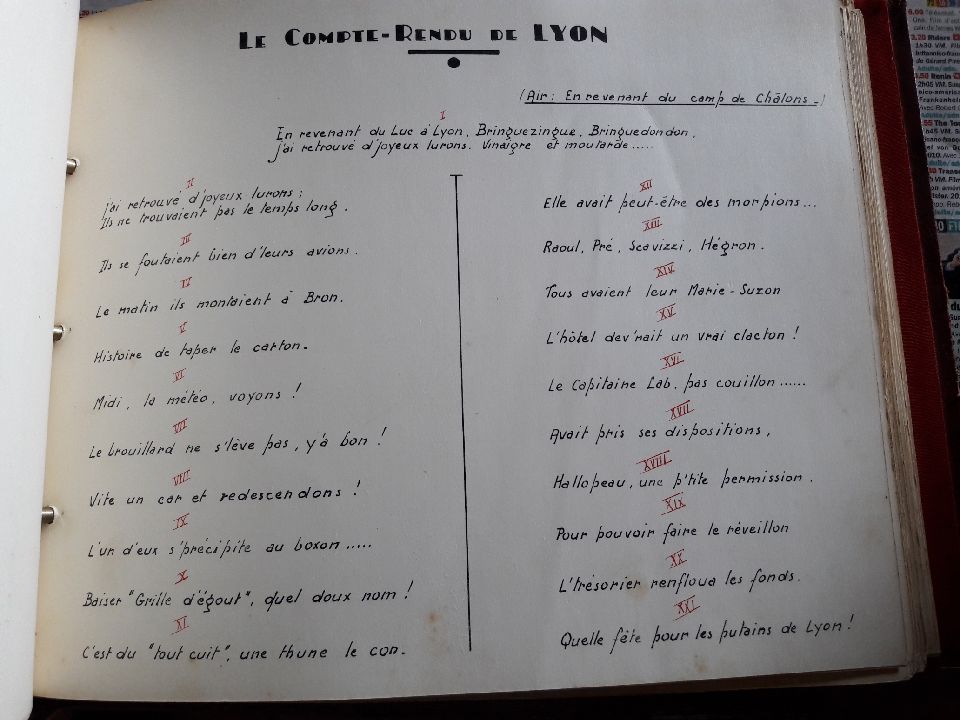 LE COMPTE-RENDU DE LYON
(Air: En revenant du camp de Châlons-)
I
En revenant du Luc à Lyon, Bringuezingue, Bringuedondon,
J'ai retrouvé d'joyeux lurons. Vinaigre et moutarde.....
II
J'ai retrouvé d'joyeux lurons;
Ils ne trouvaient pas le temps long.
III
Ils se foutaient bien d'leurs avions.
IV
Le matin ils montaient à Bron.
V
Histoire de taper le carton.
VI
Midi, la météo, voyons!
VII
Le brouillard ne s'lève pas, y'a bon!
VIII
Vite un car et redescendons!
IX
L'un d'eux s'précipite au boxon.....
X
Baiser "Grille d'égout", quel doux nom!
XI
C'est du "tout cuit", une thune le con.
XII
Elle avait peut-être des morpions...
XIII
Raoul, Pré, Scavizzi, Hégron.
XIV
Tous avaient leur Marie-Suzon
XV
L'hôtel dev'nait un vrai clacton!
XVI
Le Capitaine Lab. pas couillon......
XVII
Avait pris ses dispositions,
XVIII
Hallopeau, une p'tite permission.
XIX
Pour pouvoir faire le réveillon
XX
L'trésorier renfloua les fonds.
XXI
Quelle fête pour les putains de Lyon!